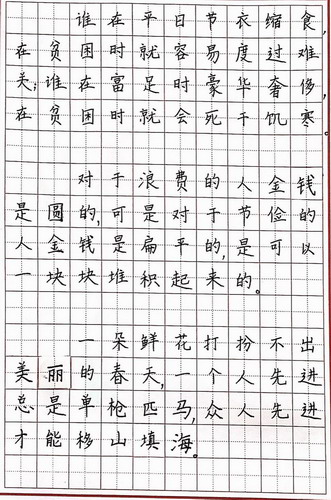 谁在平日节衣缩食,
在贫困时就容易度过难
关;谁在富足时豪华奢侈,
在贫困时就会死于饥寒。
对于浪费的人金钱
是圆的,可是对于节俭的
人金钱是扁平的,是可以
一块块堆积起来的。
一朵鲜花打扮不出
美丽的春天,一个人先进
总是单枪匹马,众人先进
才能移山填海。